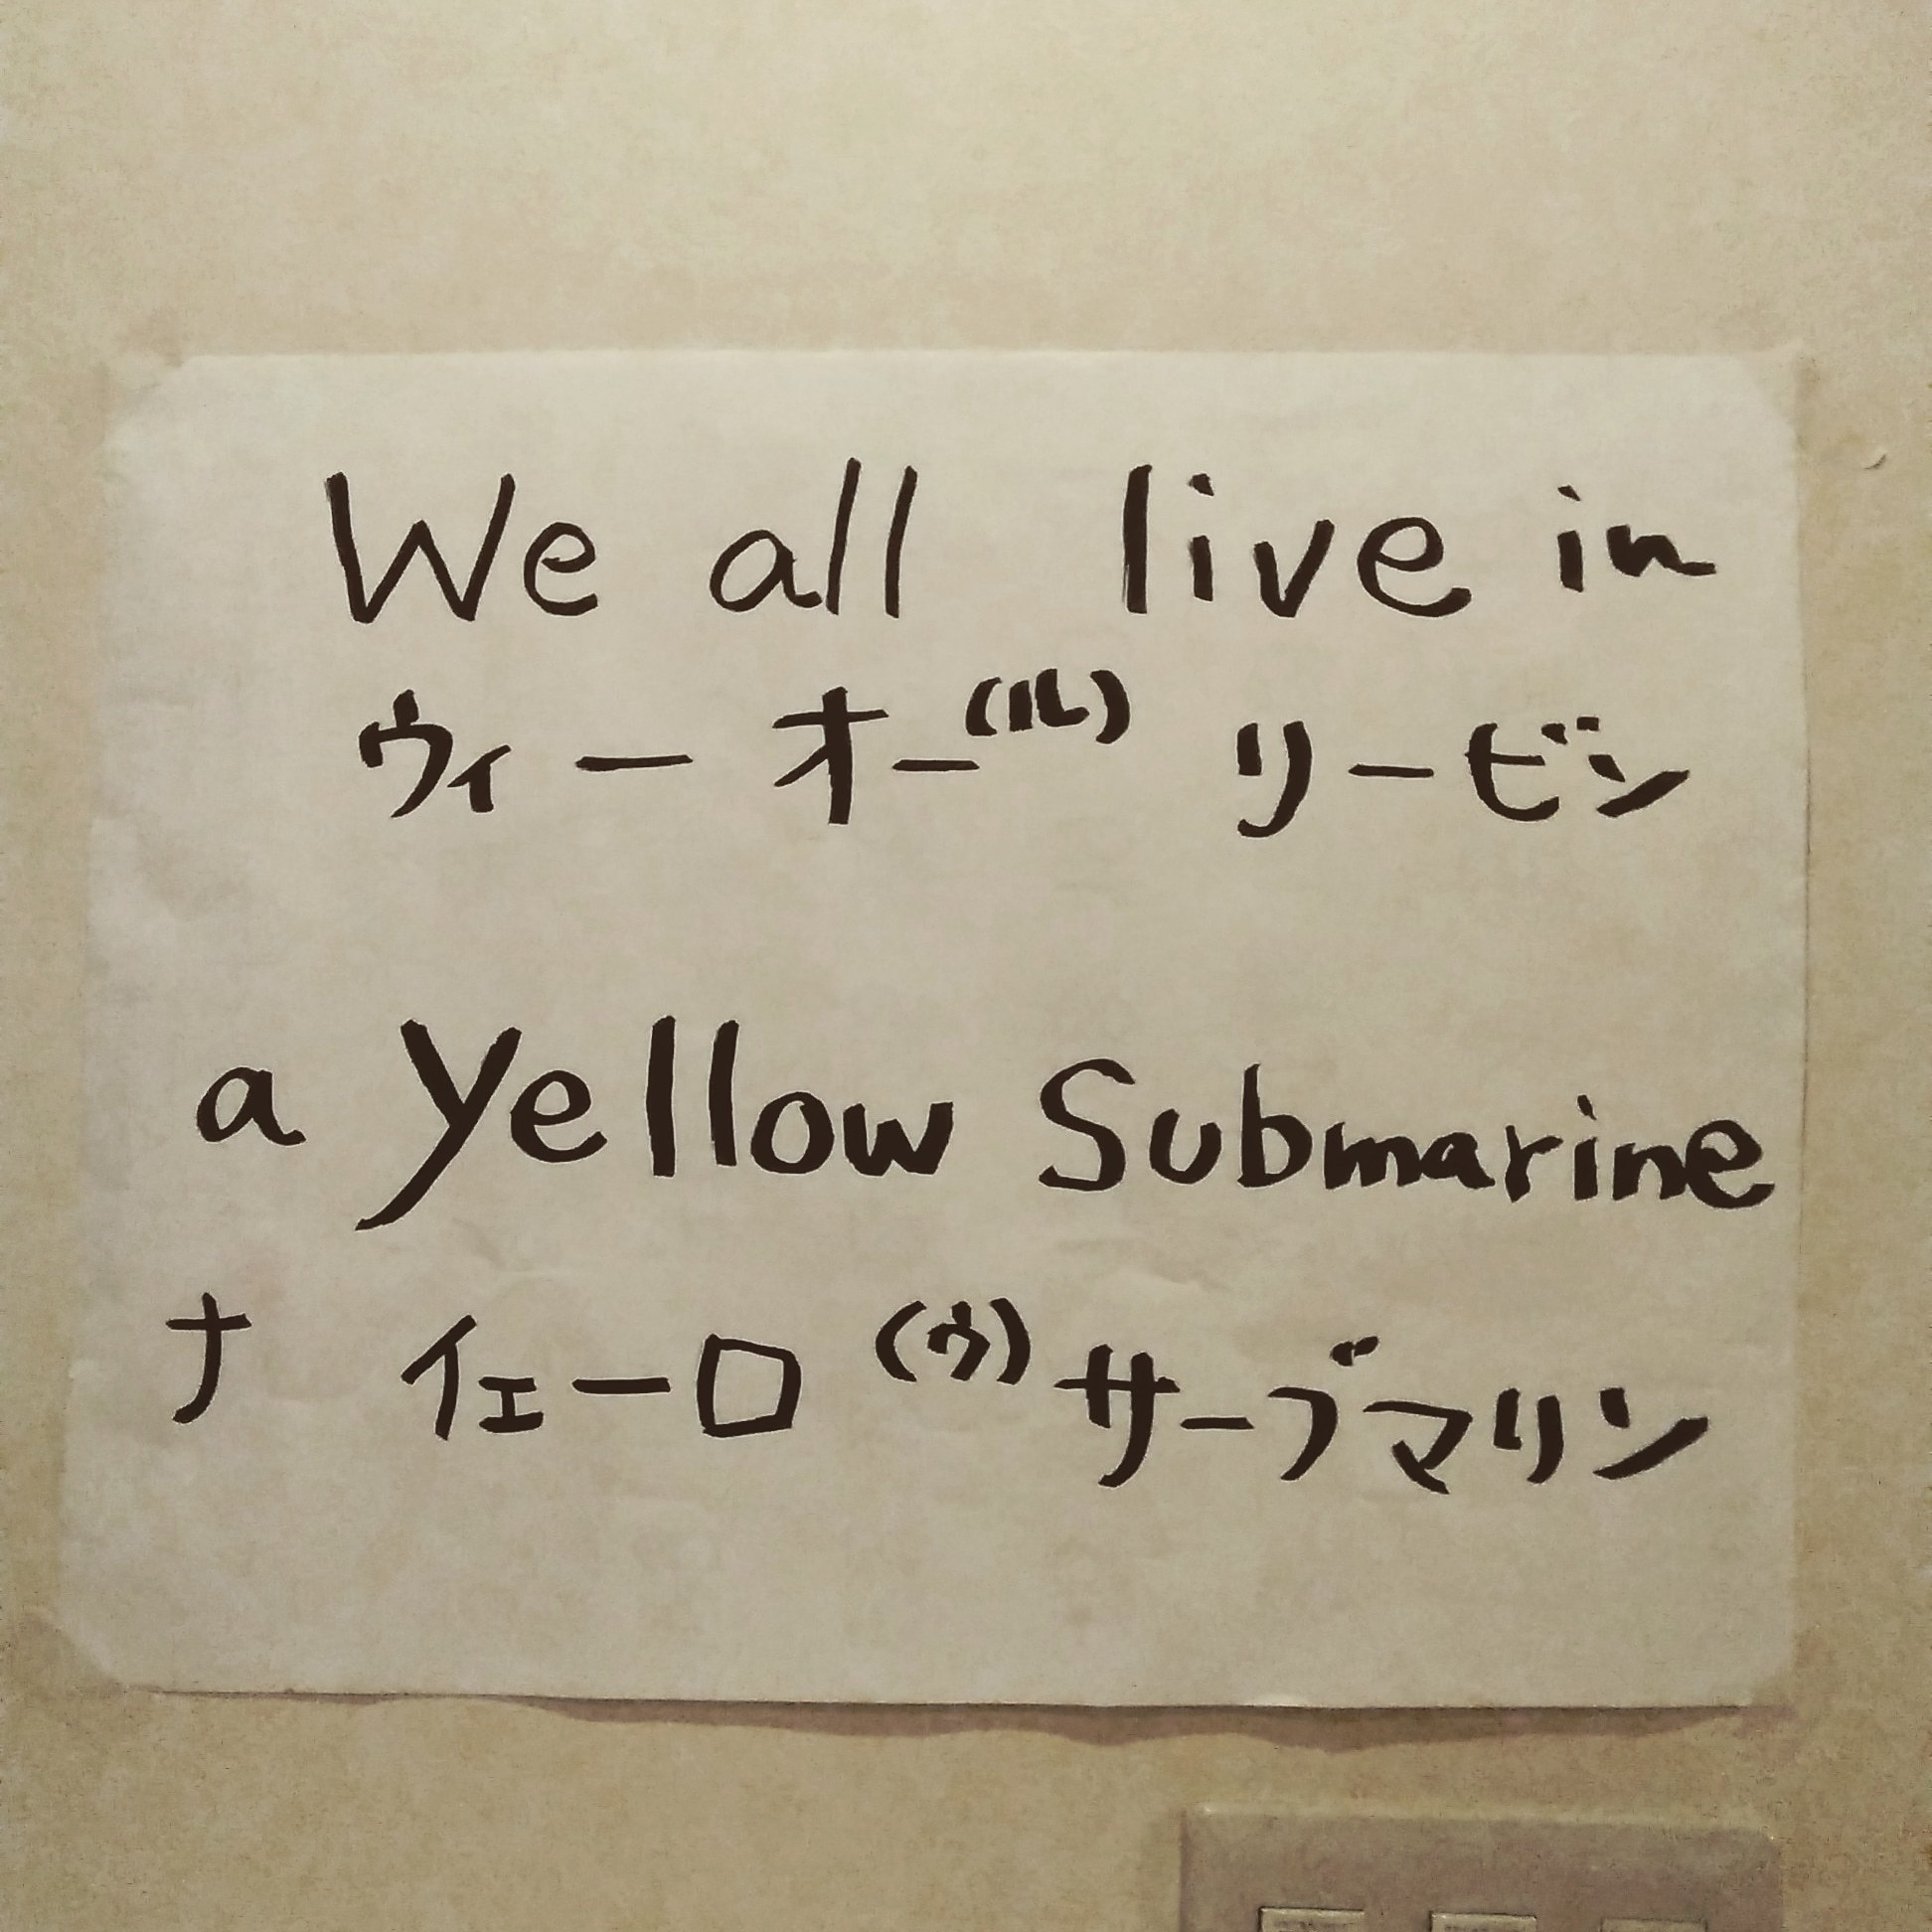 We all live in
ウィー オー(ル) リービン
a yellow Submarine
ナ イェーロ(ウ)サーブマリン